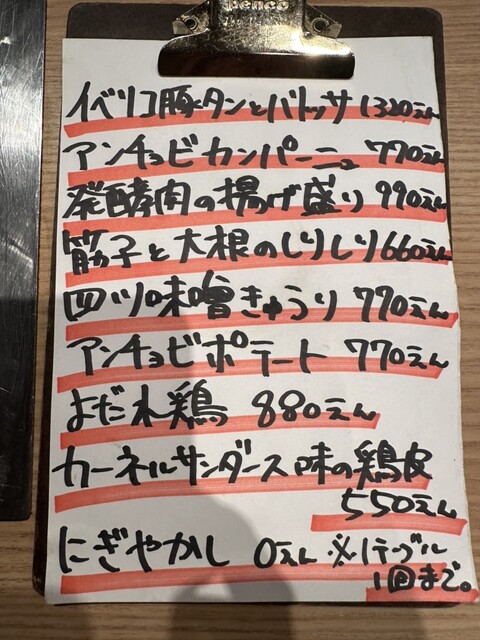 penco
イベリコ豚タンとパトッサ 1320えん
アンチョビカンパーニュ 770えん
発酵肉の揚げ盛り 990えん
筋子と大根のしりしり 660えん
四ツ味噌きゅうり 770えん
アンチョビポテート 770えん
よだれ鶏 880えん
カーネルサンダース味の鶏皮
550えん
にぎやかし 0えん ※1テーブル
1回まで。